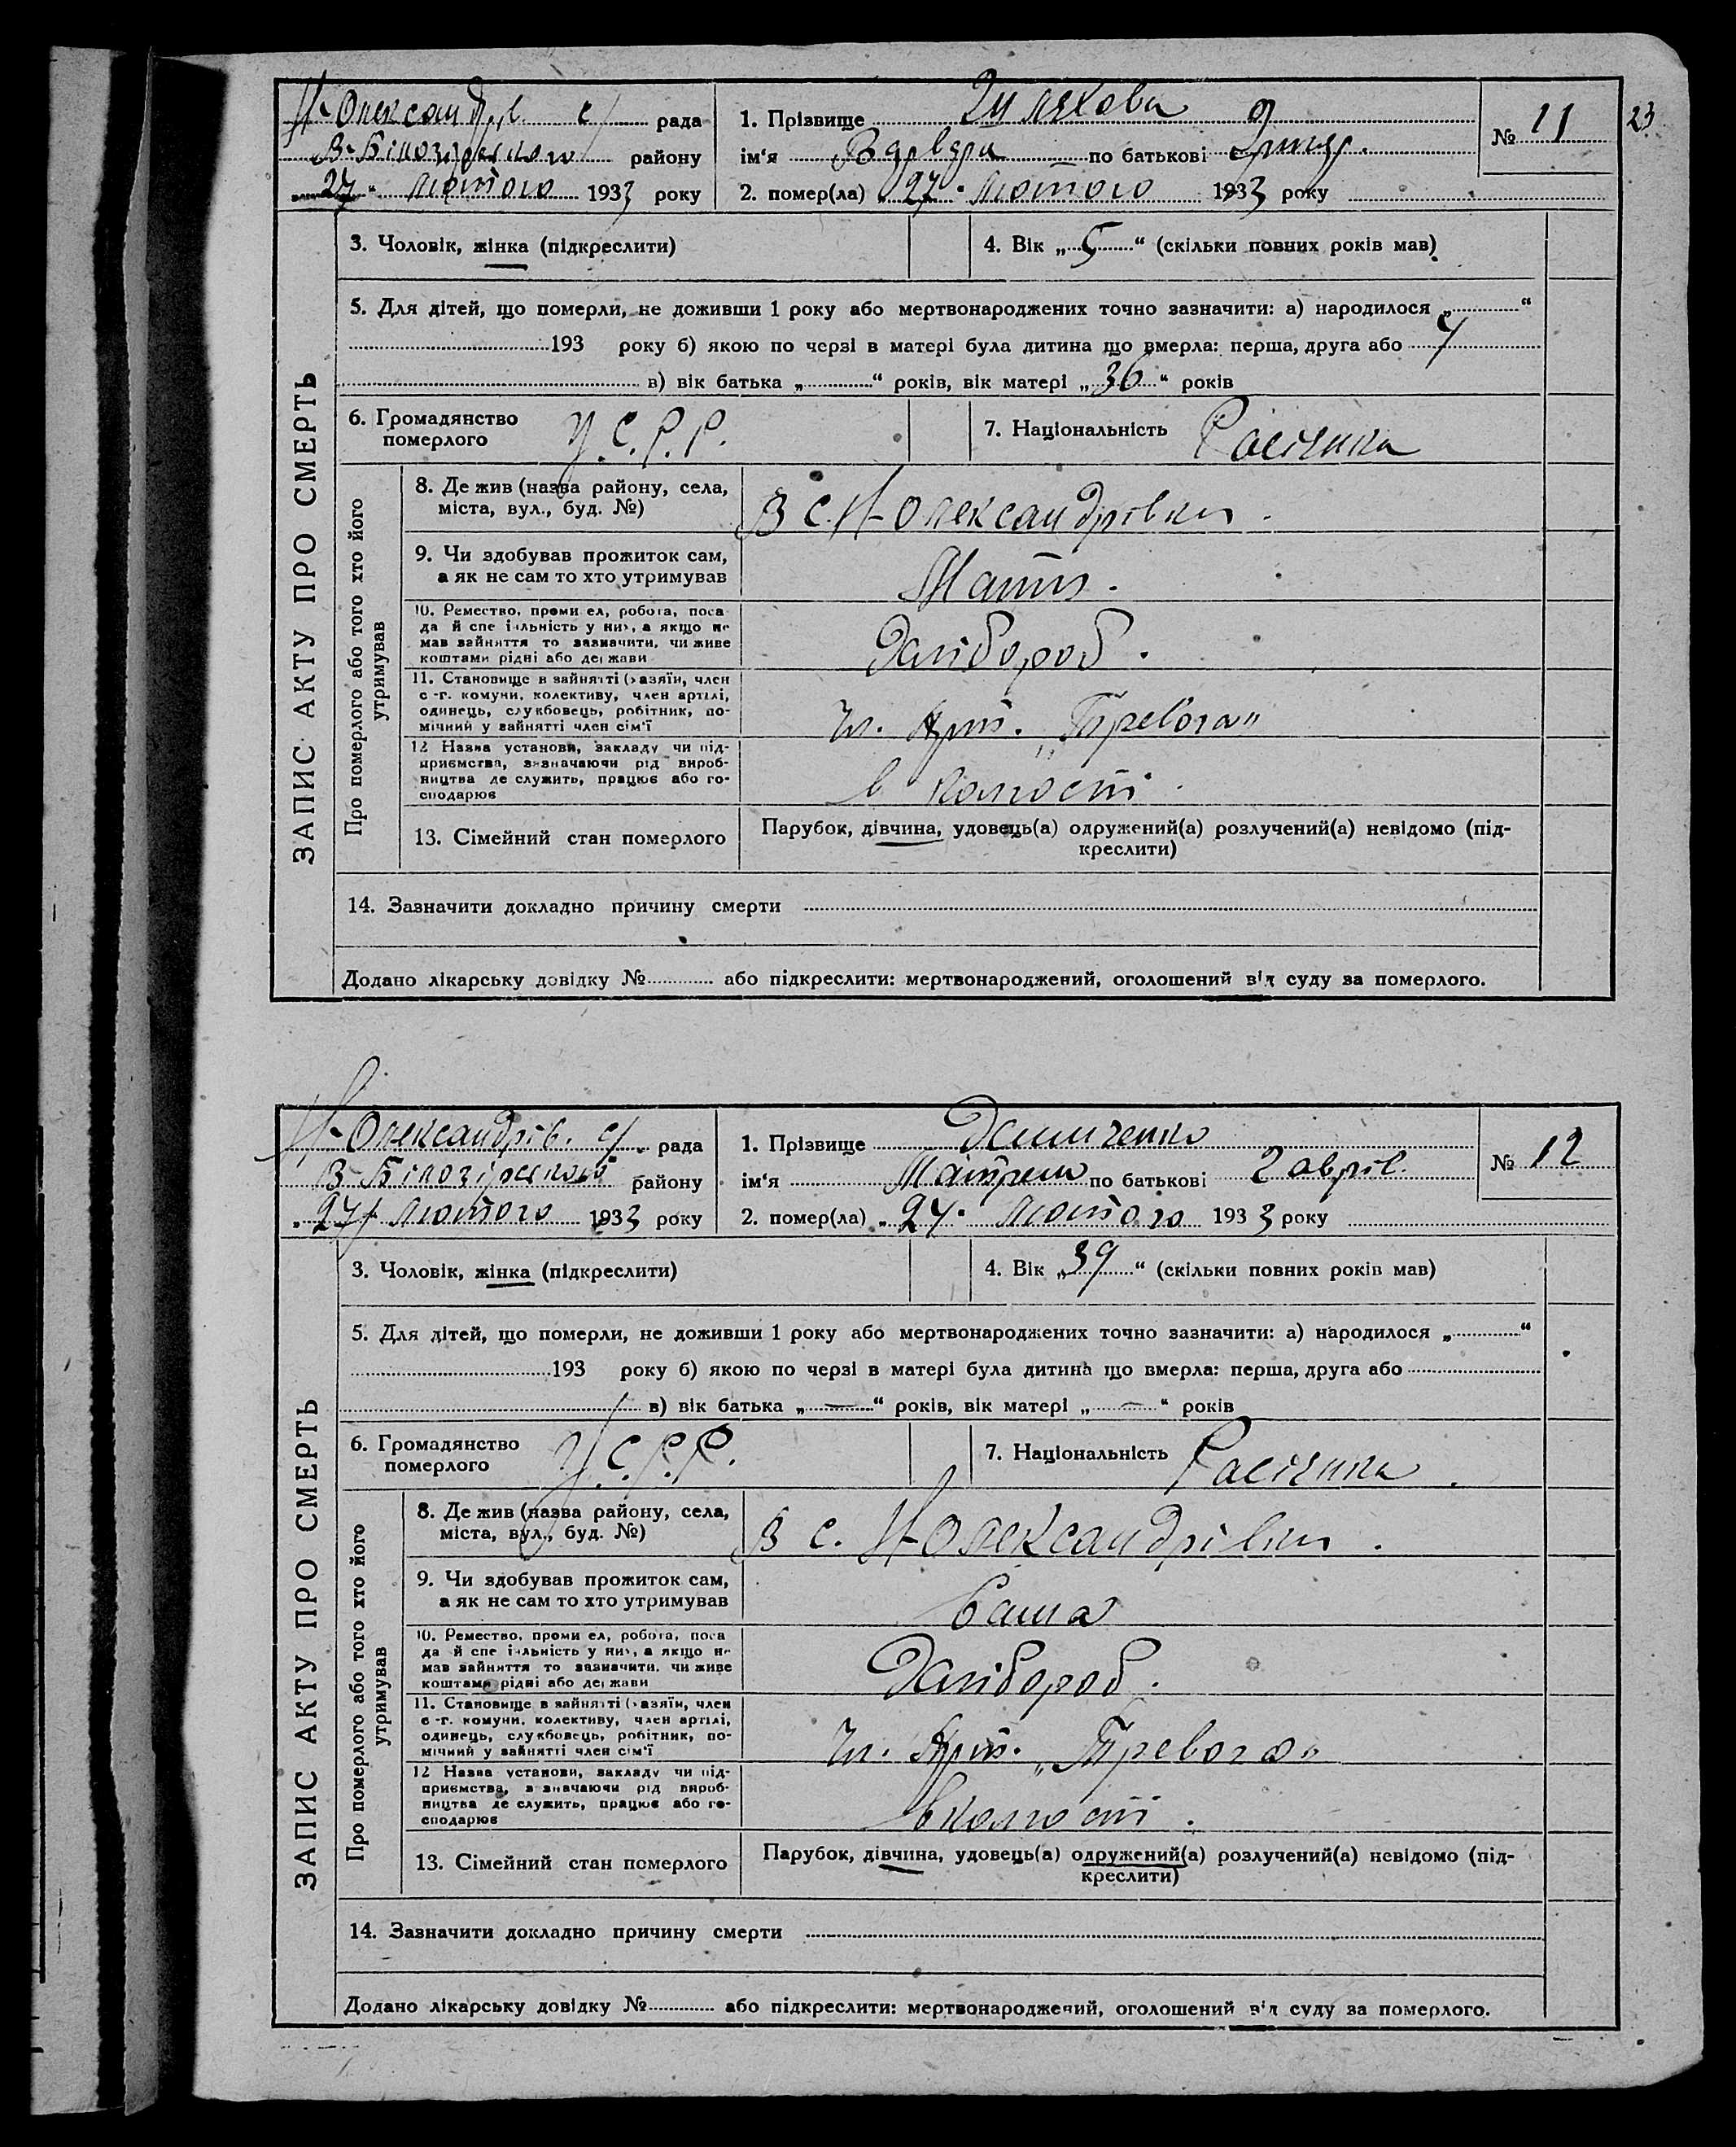 Н-Олександрів. с/ рада
В-Білозірського району
„27“ Лютого 1933 року
1. Прізвище Шляхова
ім‘я Варвара по батькові Григ.
2. помер(ла) „27“ Лютого 1933 року
№ 11
23
ЗАПИС АКТУ ПРО СМЕРТЬ
3. Чоловік, жінка (підкреслити)
4. Вік „5“ (скільки повних років мав)
5. Для дітей, що померли, не доживши 1 року або мертвонароджених точно зазначити: а) народилося „ “
193 року б) якою по черзі в матері була дитина що вмерла: перша, друга або
в) вік батька „ “ років, вік матері „36“ років
6. Громадянство померлого У.С.Р.Р.
7. Національність Росіянка
Про померлого або того хто його утримував
8. Де жив (назва району, села,
міста, вул., буд. №)
В с. Н-Олександрівки.
9. Чи здобував прожиток сам,
а як не сам то хто утримував
Мати.
10. Ремество, проми ел, робота, поса
да й спе іяльність у ни›, а якщо не
мав зайняття то зазначити, чи живе
коштами рідні або держави
11. Становище в зайнятті (хазяїн, член
с-г. комуни, колективу, член артілі,
одинець, службовець, робітник, по-
мічний у зайнятті член сім‘ї
Чл. Арт. „Тревога“
12 Назва установи, закладу чи під-
приємства, визначаючи рід вироб-
ництва де служить, працює або го-
сподарює
в колгоспі.
13. Сімейний стан померлого
Парубок, дівчина, удовець(а) одружений(а) розлучений(а) невідомо (під-
креслити)
14. Зазначити докладно причину смерти
Додано лікарську довідку № або підкреслити: мертвонароджений, оголошений від суду за померлого.
Н-Олександрів. с/ рада
В-Білозірського району
„27“ Лютого 1933 року
1. Прізвище Демченко
ім‘я Матрена по батькові Гаврів.
2. помер(ла) „27“ Лютого 1933 року
№ 12
ЗАПИС АКТУ ПРО СМЕРТЬ
3. Чоловік, жінка (підкреслити)
4. Вік „39“ (скільки повних років мав)
5. Для дітей, що померли, не доживши 1 року або мертвонароджених точно зазначити: а) народилося „ “
193 року б) якою по черзі в матері була дитина що вмерла: перша, друга або
в) вік батька „—“ років, вік матері „—“ років
6. Громадянство померлого У.С.Р.Р.
7. Національність Росіянка.
Про померлого або того хто його утримував
8. Де жив (назва району, села,
міста, вул., буд. №)
В с. Н-Олександрівки.
9. Чи здобував прожиток сам,
а як не сам то хто утримував
Сама
10. Ремество, проми ел, робота, поса
да й спе іяльність у ни›, а якщо не
мав зайняття то зазначити, чи живе
коштами рідні або держави
11. Становище в зайнятті (хазяїн, член
с-г. комуни, колективу, член артілі,
одинець, службовець, робітник, по-
мічний у зайнятті член сім‘ї
Чл. Арт. „Тревога“
12 Назва установи, закладу чи під-
приємства, визначаючи рід вироб-
ництва де служить, працює або го-
сподарює
в колгоспі.
13. Сімейний стан померлого
Парубок, дівчина, удовець(а) одружений(а) розлучений(а) невідомо (під-
креслити)
14. Зазначити докладно причину смерти
Додано лікарську довідку № або підкреслити: мертвонароджений, оголошений від суду за померлого.